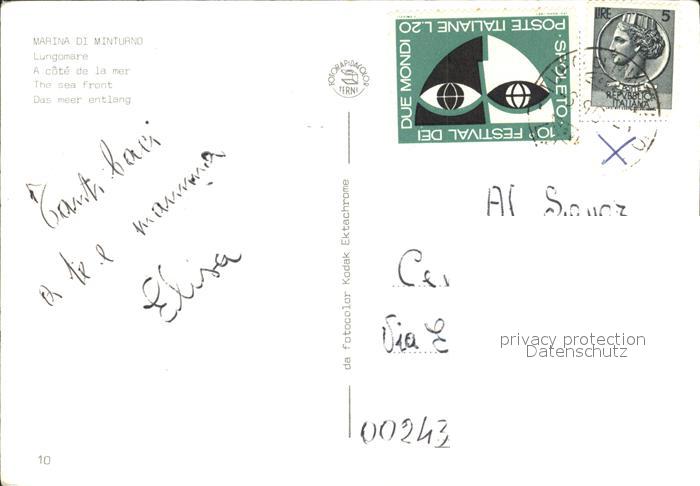 MARINA DI MINTURNO
Lungomare
A côté de la mer
The sea front
Das meer entlang
FOTORAPIDACOLOR
TERNI
DUE MONDI
POSTE ITALIANE L.20
SPOLETO
10° FESTIVAL DEI
LIRE 5
REPVBBLICA
ITALIANA
Tanti baci
a te e mamma
Elisa
da fotocolor Kodak Ektachrome
Al
Via
privacy protection
Datenschutz
00243
10